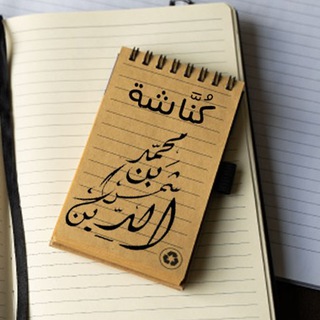 كُنَّاشة
محمّد
بن
شمس
الدّين